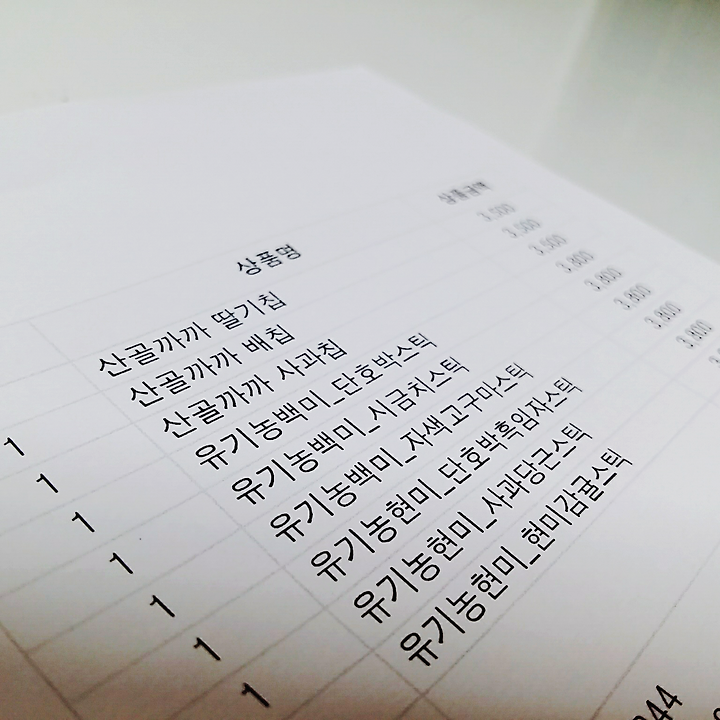 상품명 상품금액
산골까까 딸기칩 3,500
산골까까 배칩 3,500
산골까까 사과칩 3,500
1 유기농백미_단호박스틱 3,800
1 유기농백미_시금치스틱 3,800
1 유기농백미_자색고구마스틱 3,800
1 유기농현미_단호박흑임자스틱 3,800
1 유기농현미_사과당근스틱 3,800
1 유기농현미_현미감귤스틱
1